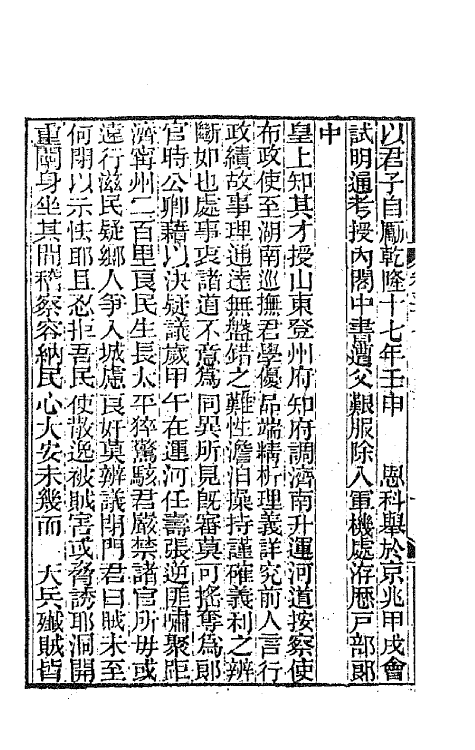 以君子自勵乾隆十七年壬申　恩科舉於京兆甲戌會
試明通考授內閣中書遭父艱服除入軍機處洊歷戶部郎
中
皇上知其才授山東登州府知府調濟南升運河道按察使
布政使至湖南巡撫君學優品端精析理義詳究前人言行
政績故事理通達無盤錯之難性澹泊操持謹確義利之辨
斷如也處事衷諸道不意爲同異所見既審莫可搖奪爲郎
官時公卿藉以決疑議歲甲午在運河任壽張逆匪嘯聚距
濟寧州二百里民生長太平猝驚駭君嚴禁諸官所毋或
遠行滋民疑鄉人爭入城慮良奸莫辨議閉門君曰賊未至
何閉以示怯耶且忍拒吾民使散逸被賊害或脅誘耶洞開
重關身坐其間稽察容納民心大安未幾而　大兵殲賊皆